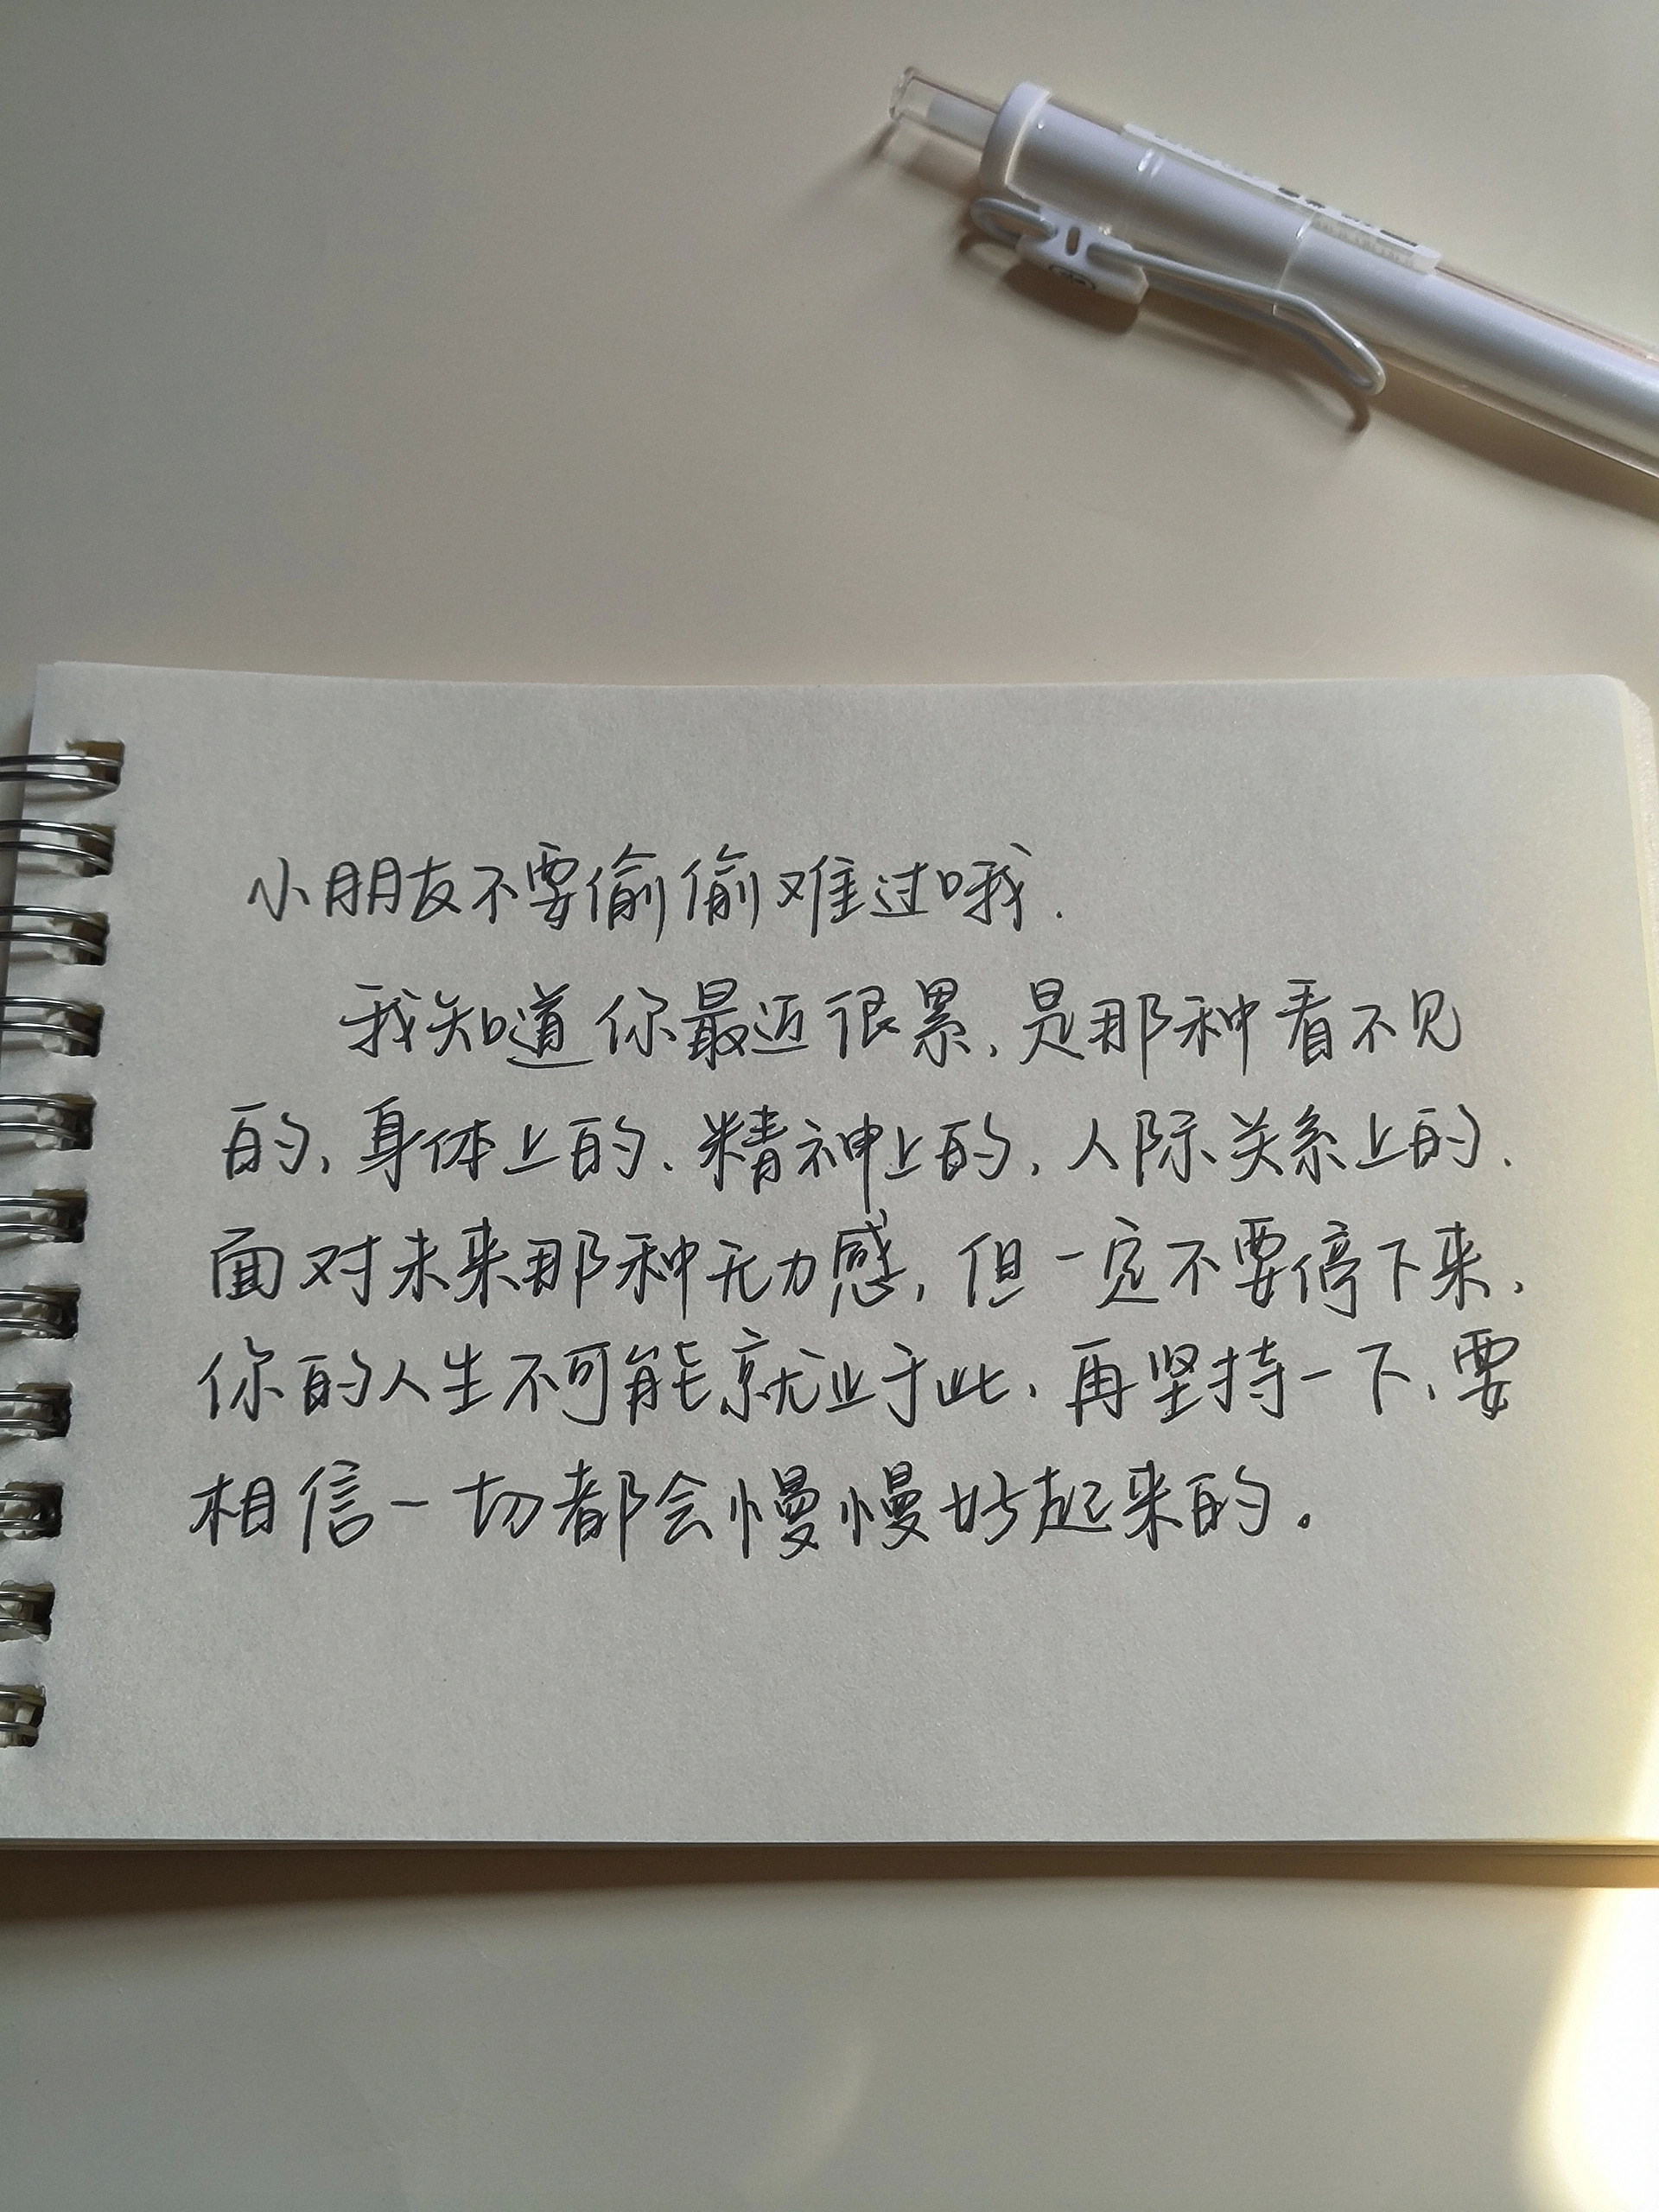 小朋友不要偷偷难过哦.
我知道你最近很累,是那种看不见
的,身体上的、精神上的,人际关系上的.
面对未来那种无力感,但一定不要停下来,
你的人生不可能就止于此,再坚持一下,要
相信一切都会慢慢好起来的。